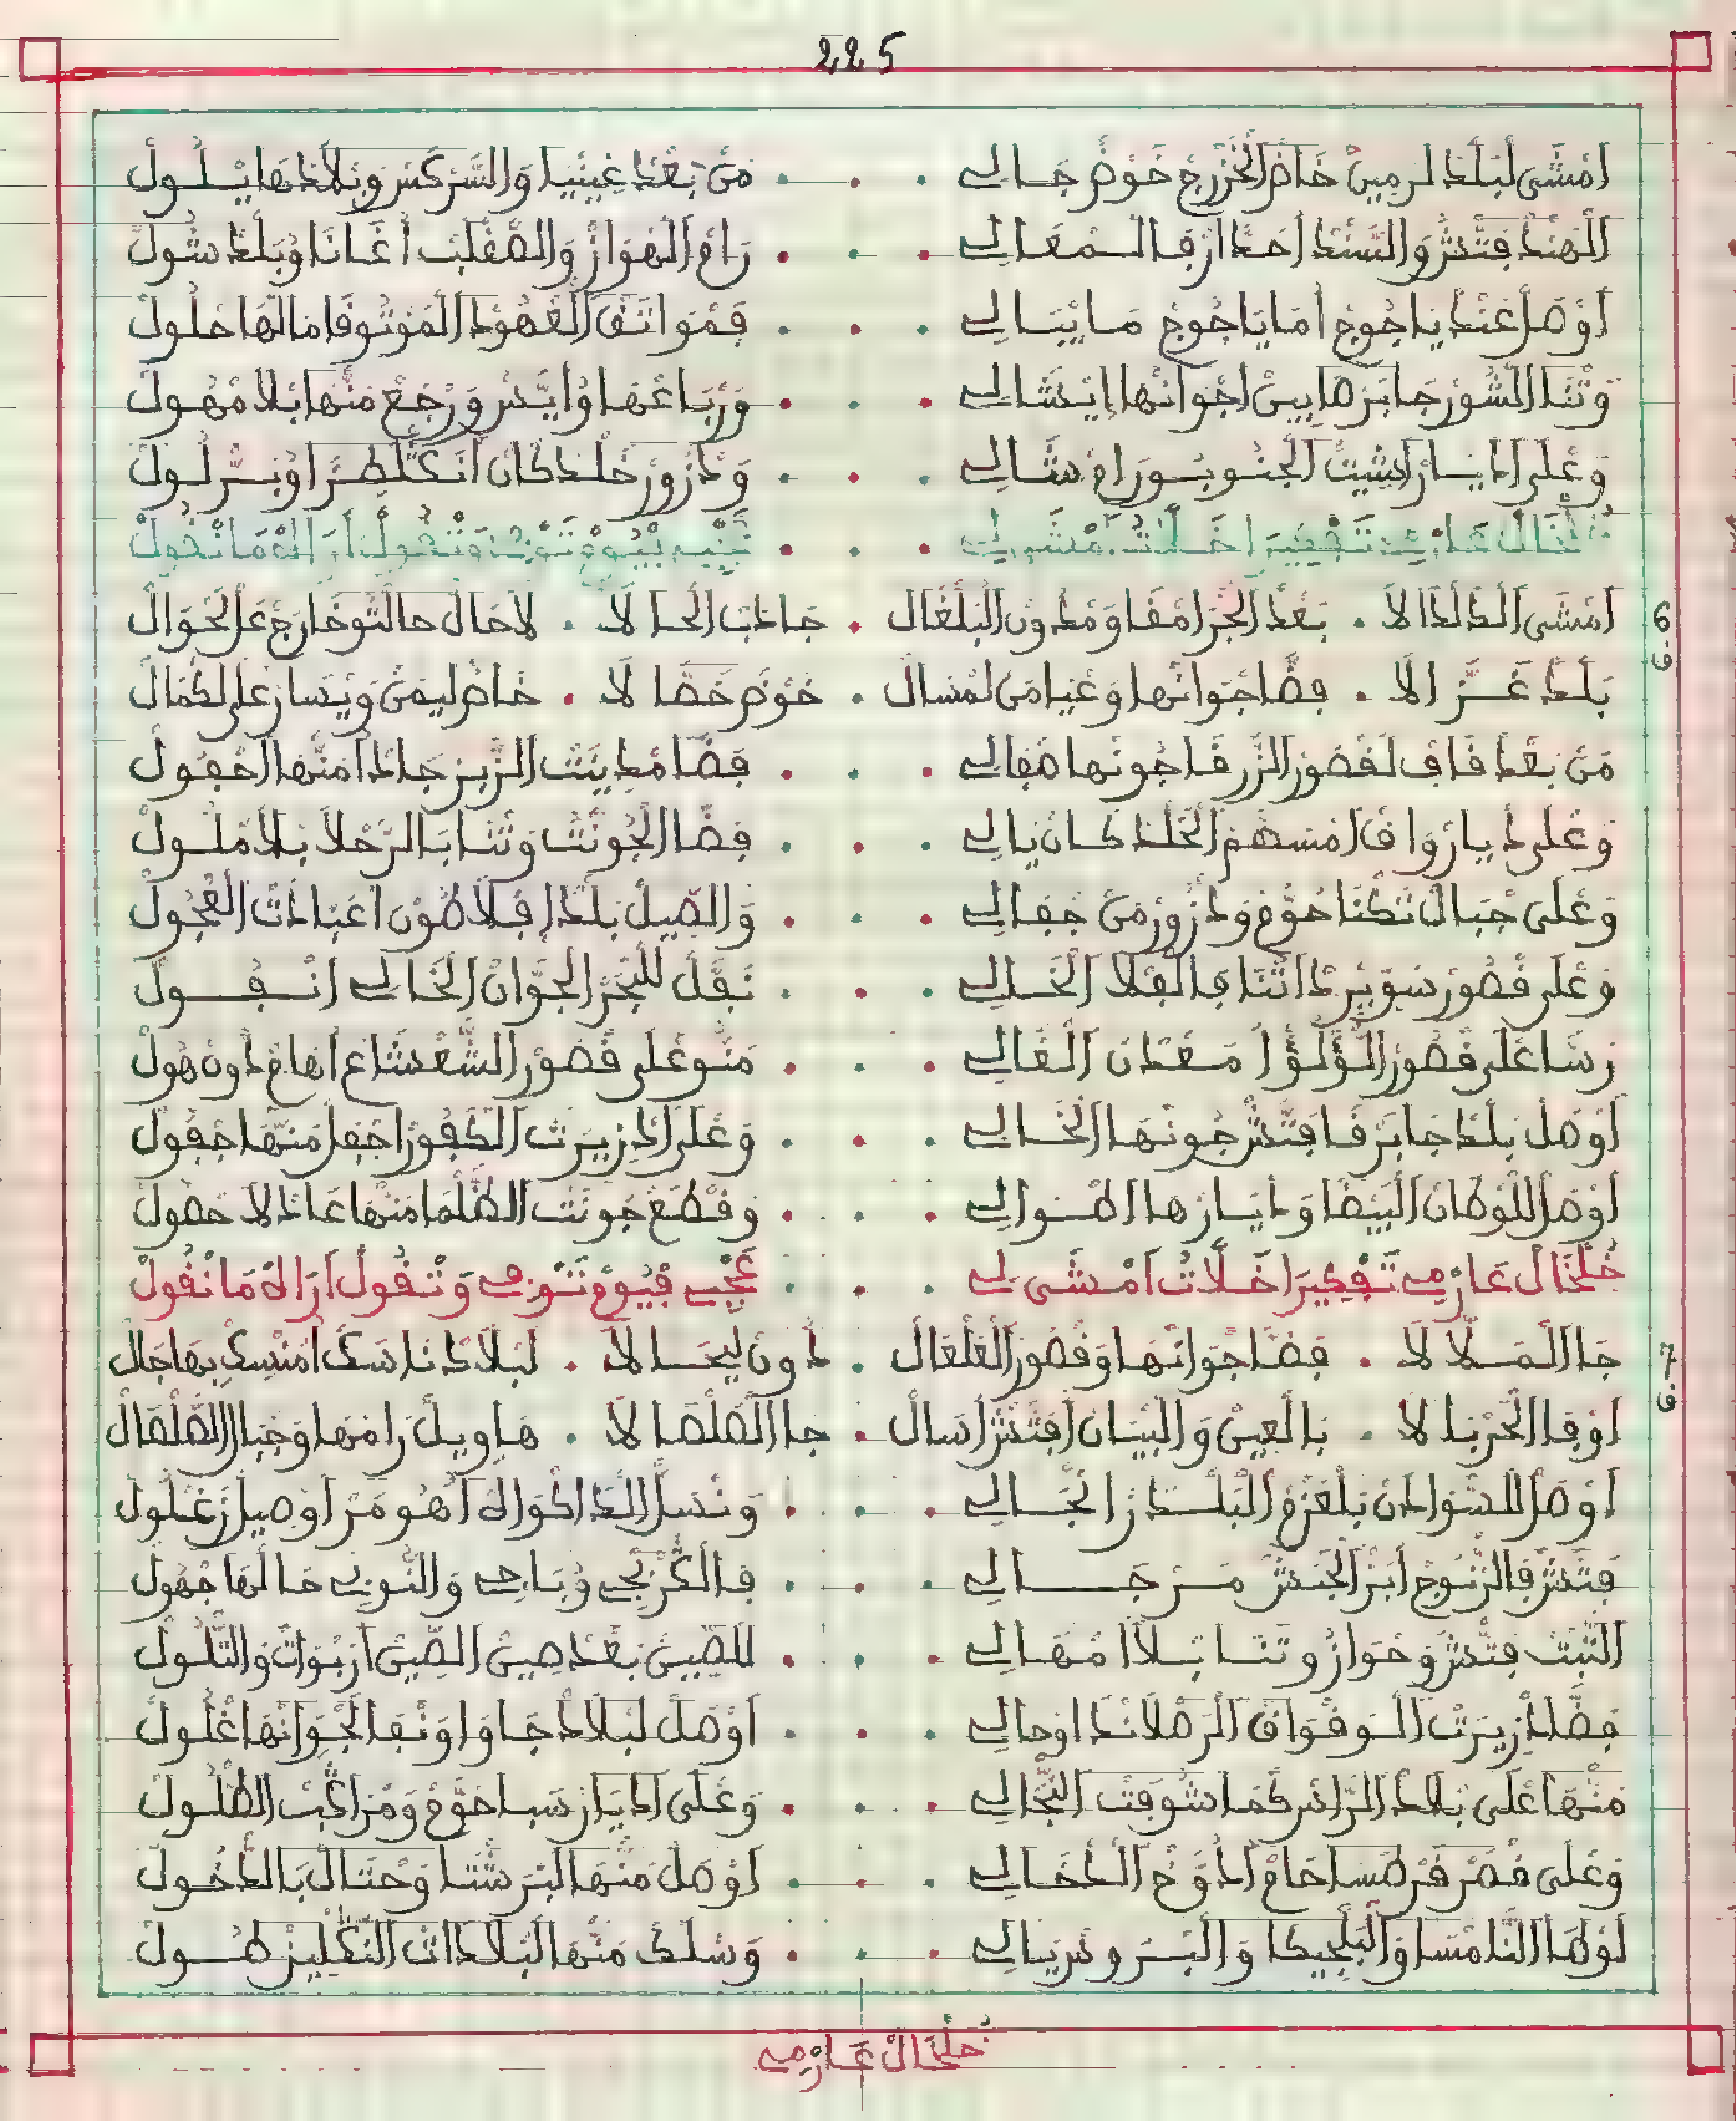 225
اَمْشَى لَبْلَدْ لرمِينْ خَاضْ الْخَزْرَجْ خَوْضْ جَالِي . . . مَنْ بَعْدْ غِينْيَا وَالسَّرْكَسْ وَبْلَادْهَا يْلُولْ
اَلْهَنْدْ فَتَّشُ وَالسَّنْدْ اَحْدَارْ فَالْمْعَالِي . . . رَامْ الْهَوَازْ وَالصَّقْلَبْ اَغَانَا وُبَلْدْ سْتُولْ
اَوْصَلْ عَنْدْ يَاجُوجْ اَمَايَاجُوجْ مَا يْبَالِي . . . فَمْوَاتَقْ الْعْهُودْ الْمَوْثُوقَا مَالْهَا حْلُولْ
وَثْنَا الشُّورْ جَابَرْصَا بِينْ اجْوَانْهَا اِيْشَالِي . . . وَرْبَاعْهَا وُاَيَّسْ وَرْجَعْ مَنْهَا بْلَا مْهُولْ
وَعْلَى ادْيَارْ شِيتْ الْجَنُوبُورَامْ شَالِي . . . وَدْزُورْ خَلْدْكَانْ اَنْكَلْطَرَّا وُبَرْلُولْ
خُلْخَالْ عَارْمِي تَفْكِيرَ اخَلَّاتْ اَمْشَى لِي . . . عَجْبِي فْيُومْ تَوْزِي وَتْقُولْ اَرَاهْ مَا نْقُولْ
6 ف
اَمْشَى الْدَلْدَالَا . بَعْدْ الْجَرَامْقَا وَمْدُونْ الْبَلْغَالْ . جَادْبْ الْحَالَا . لَاحَالْ حَالْتُو خَارَجْ عَلْحْوَالْ
بَلْدْ غَزَّالَا . فَضَّا جْوَانْهَا وَعْيَا مَنْ لَمْسَالْ . خَوْضْ خَصَّالَا . خَاضْ لِيمَنْ وَيْسَارْ عْلَى لَكْمَالْ
مَنْ بَعْدْ قَافْ لَقْصُورْ الزَّرْقَا جُونْهَا صْفَالِي . . . فَضَّا مْدِينَتْ الزَّبْرْجَادْ اَمَنْهَا اجْفُولْ
وَعْلَى دْيَارْ وَاقْ امْسَهْمْ الْخَلْدْكَانْ يَالِي . . . فَضَّا الْجُونْتْ وَثْنَا بَالرَّحْلَا بْلَا مْلُولْ
وَعْلَى جْبَالْ تَكْنَا حَوَّمْ وَدْزُورْ مَنْ جْفَالِي . . . وَالصِّيلْ بَلْدْ افْلَاطُونْ اَعْبَادَتْ الْعْجُولْ
وَعْلَى قْصُورْ سَوْبِرْدْ اثْنَا فَالْفْلَا الْخَالِي . . . نَقْلْ لَلْبْحَرْ الْجَوَّانْ الْخَالِي اَنْفُولْ
رْسَا عْلَى قْصُورْ اللُّؤْلُؤْ اَ مَعْدَنْ الْغَالِي . . . مَنُّو عْلَى قْصُورْ الشَّعْشَاعْ اَهَامْ دُونْ هُولْ
اَوْصَلْ بَلْدْ جَابَرْقَا فَتَّشْ جُونْهَا الْخَالِي . . . وَعْلَى ادْزِيرَتْ الْكَفُورْ اجْفَلْ مَنْهَا جْفُولْ
اَوْصَلْ لَلْوْطَانْ الْبَيْضَا وَدْيَارْهَا اطْوَالِي . . . وَقْطَعْ جُونْتْ الظَّلْمَا مَنْهَا عَادْ لَاحْصُولْ
خُلْخَالْ عَارْمِي تَفْكِيرَ اخَلَّاتْ اَمْشَى لِي . . . عَجْبِي فْيُومْ تَوْزِي وَتْقُولْ اَرَاهْ مَا نْقُولْ
7 ف
جَا الْمَلَّالَا . فَضَّا جْوَانْهَا وَقْصُورْ الْغَلْغَالْ . دُونْ لِيحَالَا . لَبْلَادْ نَارْسَكْ اَمْنْسَكْ بِهَا جَالْ
اَوْفَا الْخَرْبَالَا . بَالْعِينْ وَالْبْيَانْ اَفَتَّشْ اَسَالْ . جَا الصَّلْصَالَا . هَاوِيلْ رَامْهَا وَجْبَالْ الصَّلْصَالْ
اَوْصَلْ لَلسْوَادَنْ بَلْعَزْمْ الْبَلْدْ زَانْجَالِي . . . وَنْسَلْ الْدَاكْوَاهْ اَهُومَرْ اَوْصِيلْ زَغْلُولْ
فَتَّشْ فَالزْنُوجْ اَبَرْ الْحَبْشْ مَرْجَالِي . . . فَالْكَرْبَجِي وُبَاجِي وَالنُّوبِي حَالْهَا جْهُولْ
التَّبْتْ فَتَّشُ وَحْوَازُ وَثْنَا بْلَا امْهَالِي . . . لَلصِّينْ بَعْدْ صِينْ الصِّينْ اَرْبْوَاتُ وَالتْلُولْ
فَضَّلْ ادْزِيرَتْ الْوَقْوَاقْ الرَّمْلَا نْدَا وْحَالِي . . . اَوْصَلْ لَبْلَادْ جَاوَا وَنْفَا لَجْوَانْهَا غْلُولْ
مَنْهَا عْلَى بْلَادْ الرَّاسْ كَمَا شَوْفَتْ النْجَالِي . . . وَعْلَى ادْيَارْ سَبَا حَوَّمْ وَمْرَاكَبْ الطْلُولْ
وَعْلَى قْصَرْ قَرْطَسَا حَامْ ادْوَّخْ الدْخَالِي . . . اَوْصَلْ مَنْهَا الْبَرْشْتَا وَحْتَالْ بَالدْخُولْ
لَوْطَا النَّامْسَا وَالْبَلْجِيكَا وَالْبَرُوسْيَالِي . . . وَسْلَكْ مَنْهَا لَبْلَادَاتْ النَّكْلِيزْ طُولْ
خُلْخَالْ عَارْمِي